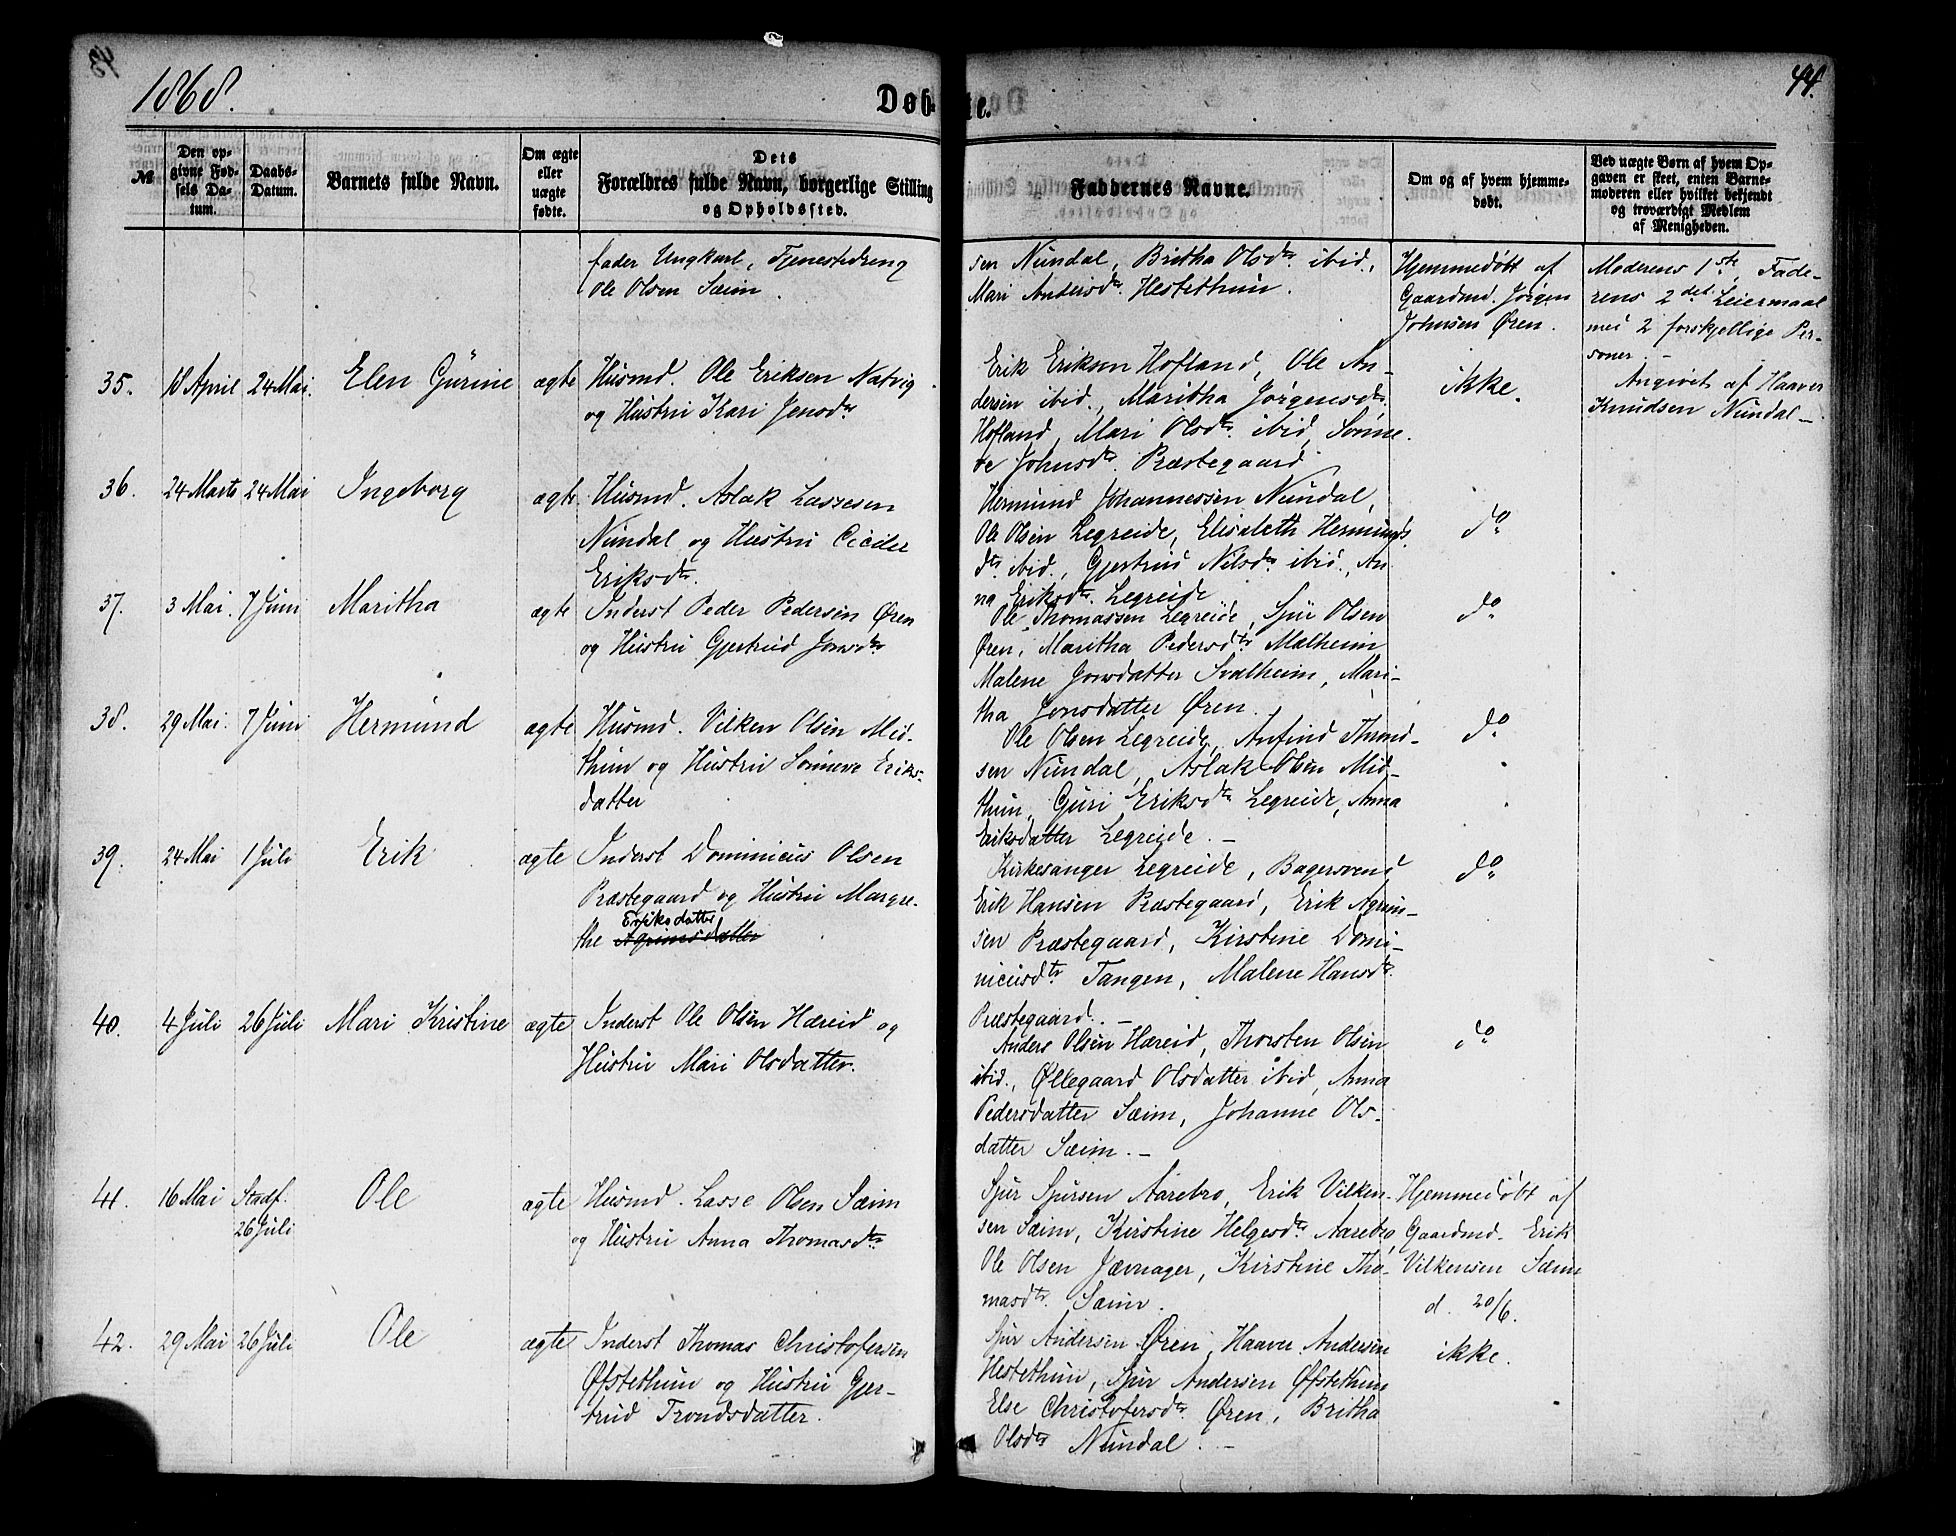 1868.
Døb-
te.
44.
№
Den op-
givne Fød-
sels Da-
tum.
Daabs-
Datum.
Barnets fulde Navn.
Om ægte
eller
uægte
fødte.
Dets
Forældres fulde Navn, borgerlige Stilling
og Opholdssted.
Faddernes Navne.
Om og af hvem hjemme-
døbt.
Ved uægte Børn af hvem Op-
gaven er skeet, enten Barne-
moderen eller hvilket bekjendt
og troværdigt Medlem
af Menigheden.
fader Ungkarl, Tjenestedreng
Ole Olsen Sæim.
sen Nundal, Britha Olsdtr. ibid.,
Mari Andersdtr. Hestethun.
Hjemmedøbt af
Gaardmd. Jørgen
Johnsen Øren.
Moderens 1ste, Fade-
rens 2det Leiermaal
med 2 forskjellige Per-
soner. -
Angivet af Haaver
Knudsen Nundal -
35.
18 April
24 Mai.
Elen Gurine
ægte
Husmd. Ole Eriksen Natvig
og Hustru Kari Jensdtr
Erik Eriksen Hofland, Ole An-
dersen ibid., Maritha Jørgensdtr.
Hofland, Mari Olsdtr. ibid, Sønne-
ve Johnsdtr. Præstegaard
ikke.
36.
24 Marts
24 Mai
Ingeborg
ægte
Husmd. Aslak Lassesen
Nundal og Hustru Cicilie
Eriksdtr.
Hermund Johannessen Nundal,
Ole Olsen Legreide, Elisabeth Hermunds-
dtr. ibid., Gjertrud Nilsdtr. ibid., An
na Eriksdtr. Legreide
do
37.
3 Mai.
7 Juni
Maritha
ægte
Inderst Peder Pedersen Øren
og Hustru Gjertrud Jonsdtr
Ole Thomassen Legreide, Sjur Olsen
Øren, Maritha Pedersdtr. Malheim
Malene Jonsdatter Svalheim, Mari-
tha Jonsdatter Øren.
do
38.
29 Mai.
7 Juni
Hermund
ægte
Husmd. Vilken Olsen Mid-
thun og Hustru Sønneve Eriks-
datter
Ole Olsen Legreide, Anfind Thrond-
sen Nundal, Aslak Olsen Mid-
thun, Guri Eriksdtr. Legreide, Anna
Eriksdatter Legreide. -
do
39.
24 Mai
1 Juli
Erik
ægte
Inderst Dominicus Olsen
Præstegaard og Hustru Margre-
Eriksdatter
the Agrimsdatter
Kirkesanger Legreide, Bagersvend
Erik Hansen Præstegaard, Erik Agrim-
sen Præstegaard, Kirstine Domi-
nicusdtr. Tangen, Malene Hansdtr.
Præstegaard. -
do
40.
4 Juli
26 Juli
Mari Kristine
ægte
Inderst Ole Olsen Hæreid og
Hustru Mari Olsdatter.
Anders Olsen Hæreid, Thorsten Olsen
ibid., Øllegaard Olsdatter ibid, Anna
Pedersdatter Sæim, Johanne Ols-
datter Sæim. -
do
41.
16 Mai
Stadf.
26 Juli
Ole
ægte
Husmd. Lasse Olsen Sæim
og Hustru Anna Thomasdtr.
Sjur Sjursen Aarebro, Erik Vilken-
sen Sæim, Kirstine Helgesdtr. Aarebro,
Ole Olsen Jævnager, Kirstine Tho-
masdtr. Sæim.
Hjemmedøbt af
Gaardmd. Erik
Vilkensen Sæim
d. 20/6.
42.
29 Mai
26 Juli
Ole
ægte
Inderst Thomas Christofersen
Øfstethun og Hustru Gjer-
trud Trondsdatter.
Sjur Andersen Øren, Haaver Andersen
Hestethun, Sjur Andersen Øfstethun
Else Christofersdtr. Øren, Britha
Olsdtr Nundal. -
ikke.